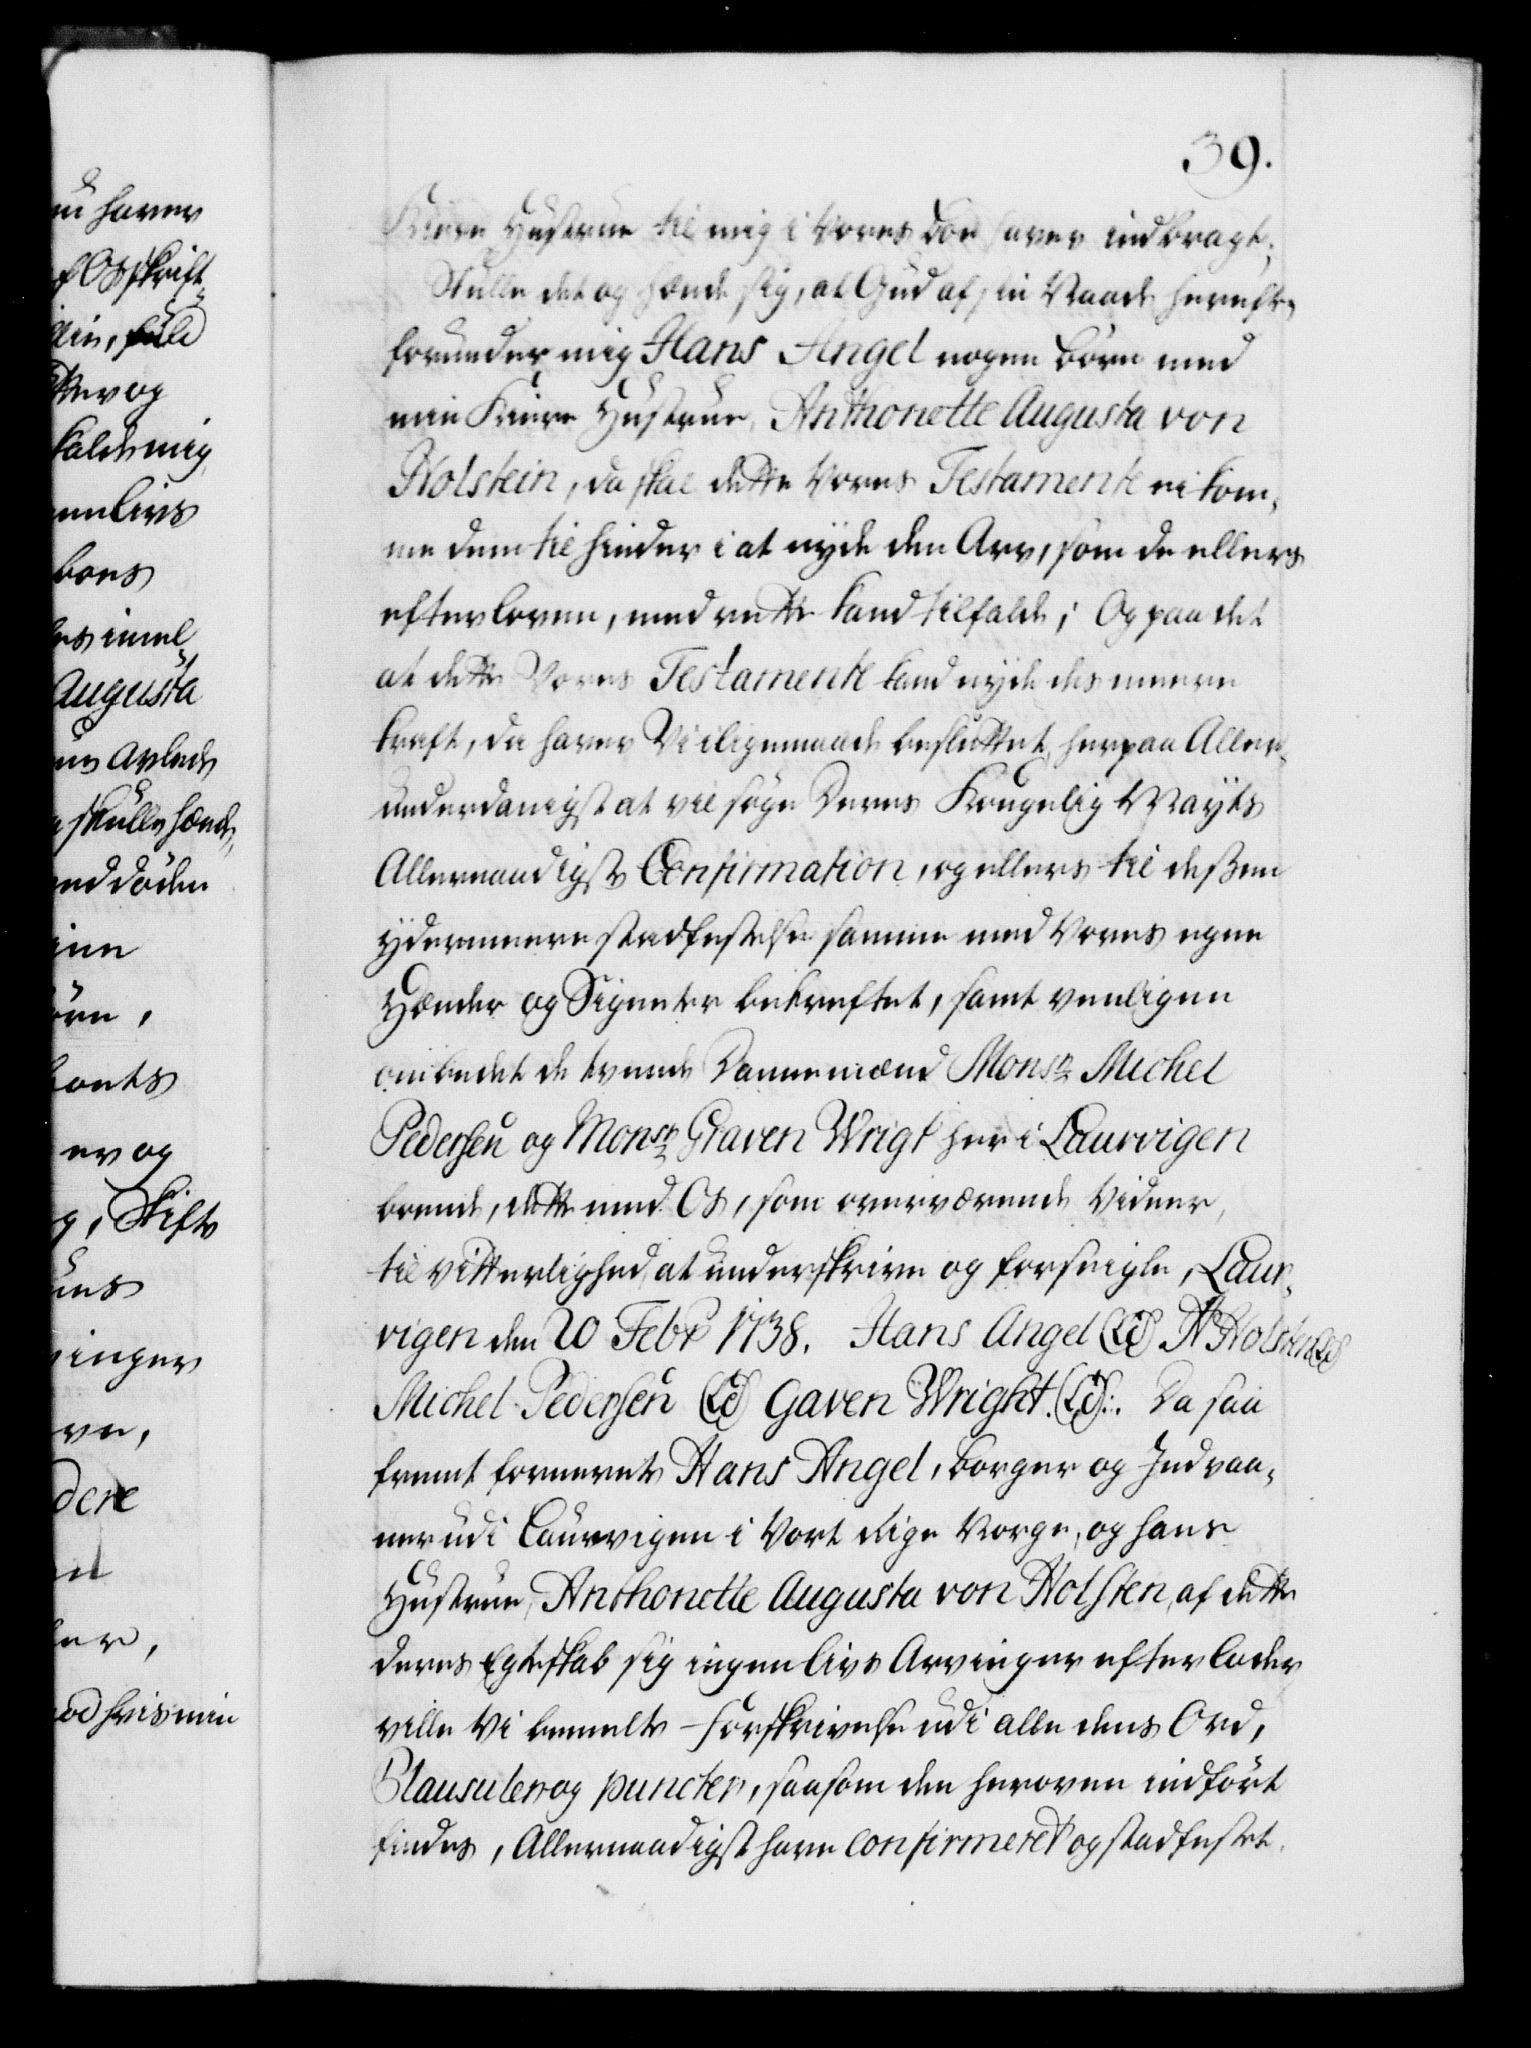 39.
Kiere Hustrue til mig i Vores Boe haver indbragt;
Skulle det og hænde sig, at Gud af sin Naade herefter
forunder mig Hans Angel nogen Børn med
min Kiere Hustrue, Anthonette Augusta von
Holstein, da skal dette Vores Testamente ei kom-
me dem til hinder i at nyde den Arv, som de ellers
efter loven, med rette kand tilfalde; Og paa det
at dette Vores Testamente kand nyde des meere
kraft, da haver Vi iligemaade besluttet, herpaa Aller-
underdanigst at vil søge Deres Kongelig Mayts
Allernaadigste Confirmation, og ellers til deßen
ydermeere stadfestelse samme med Vores egne
Hænder og Signeter bekreftet, samt venligen
ombedet de tvende Dannemænd Monsr Michel
Pedersen og Monsr Graven Wrigt her i Laurvigen
boende, dette med Os, som overværende Vidner,
til Vitterlighed, at underskrive og forseigle, Laur-
vigen den 20 Febr 1738. Hans Angel (LS) A Holsten (LS)
Michel Pedersen (LS) Gaven Wright. (LS):. Da saa
fremt fornevnte Hans Angel, borger og Indvaa-
ner udi Laurvigen i Vort Rige Norge, og hans
Hustrue, Anthonette Augusta von Holsten, af dette
deres Egteskab sig ingen livs Arvinger efterlader
ville Vi bemelte Forskrivelse udi alle dens Ord,
Clausuler og puncter, saasom den heroven indført
findes, Allernaadigst have confirmeret og stadfestet.